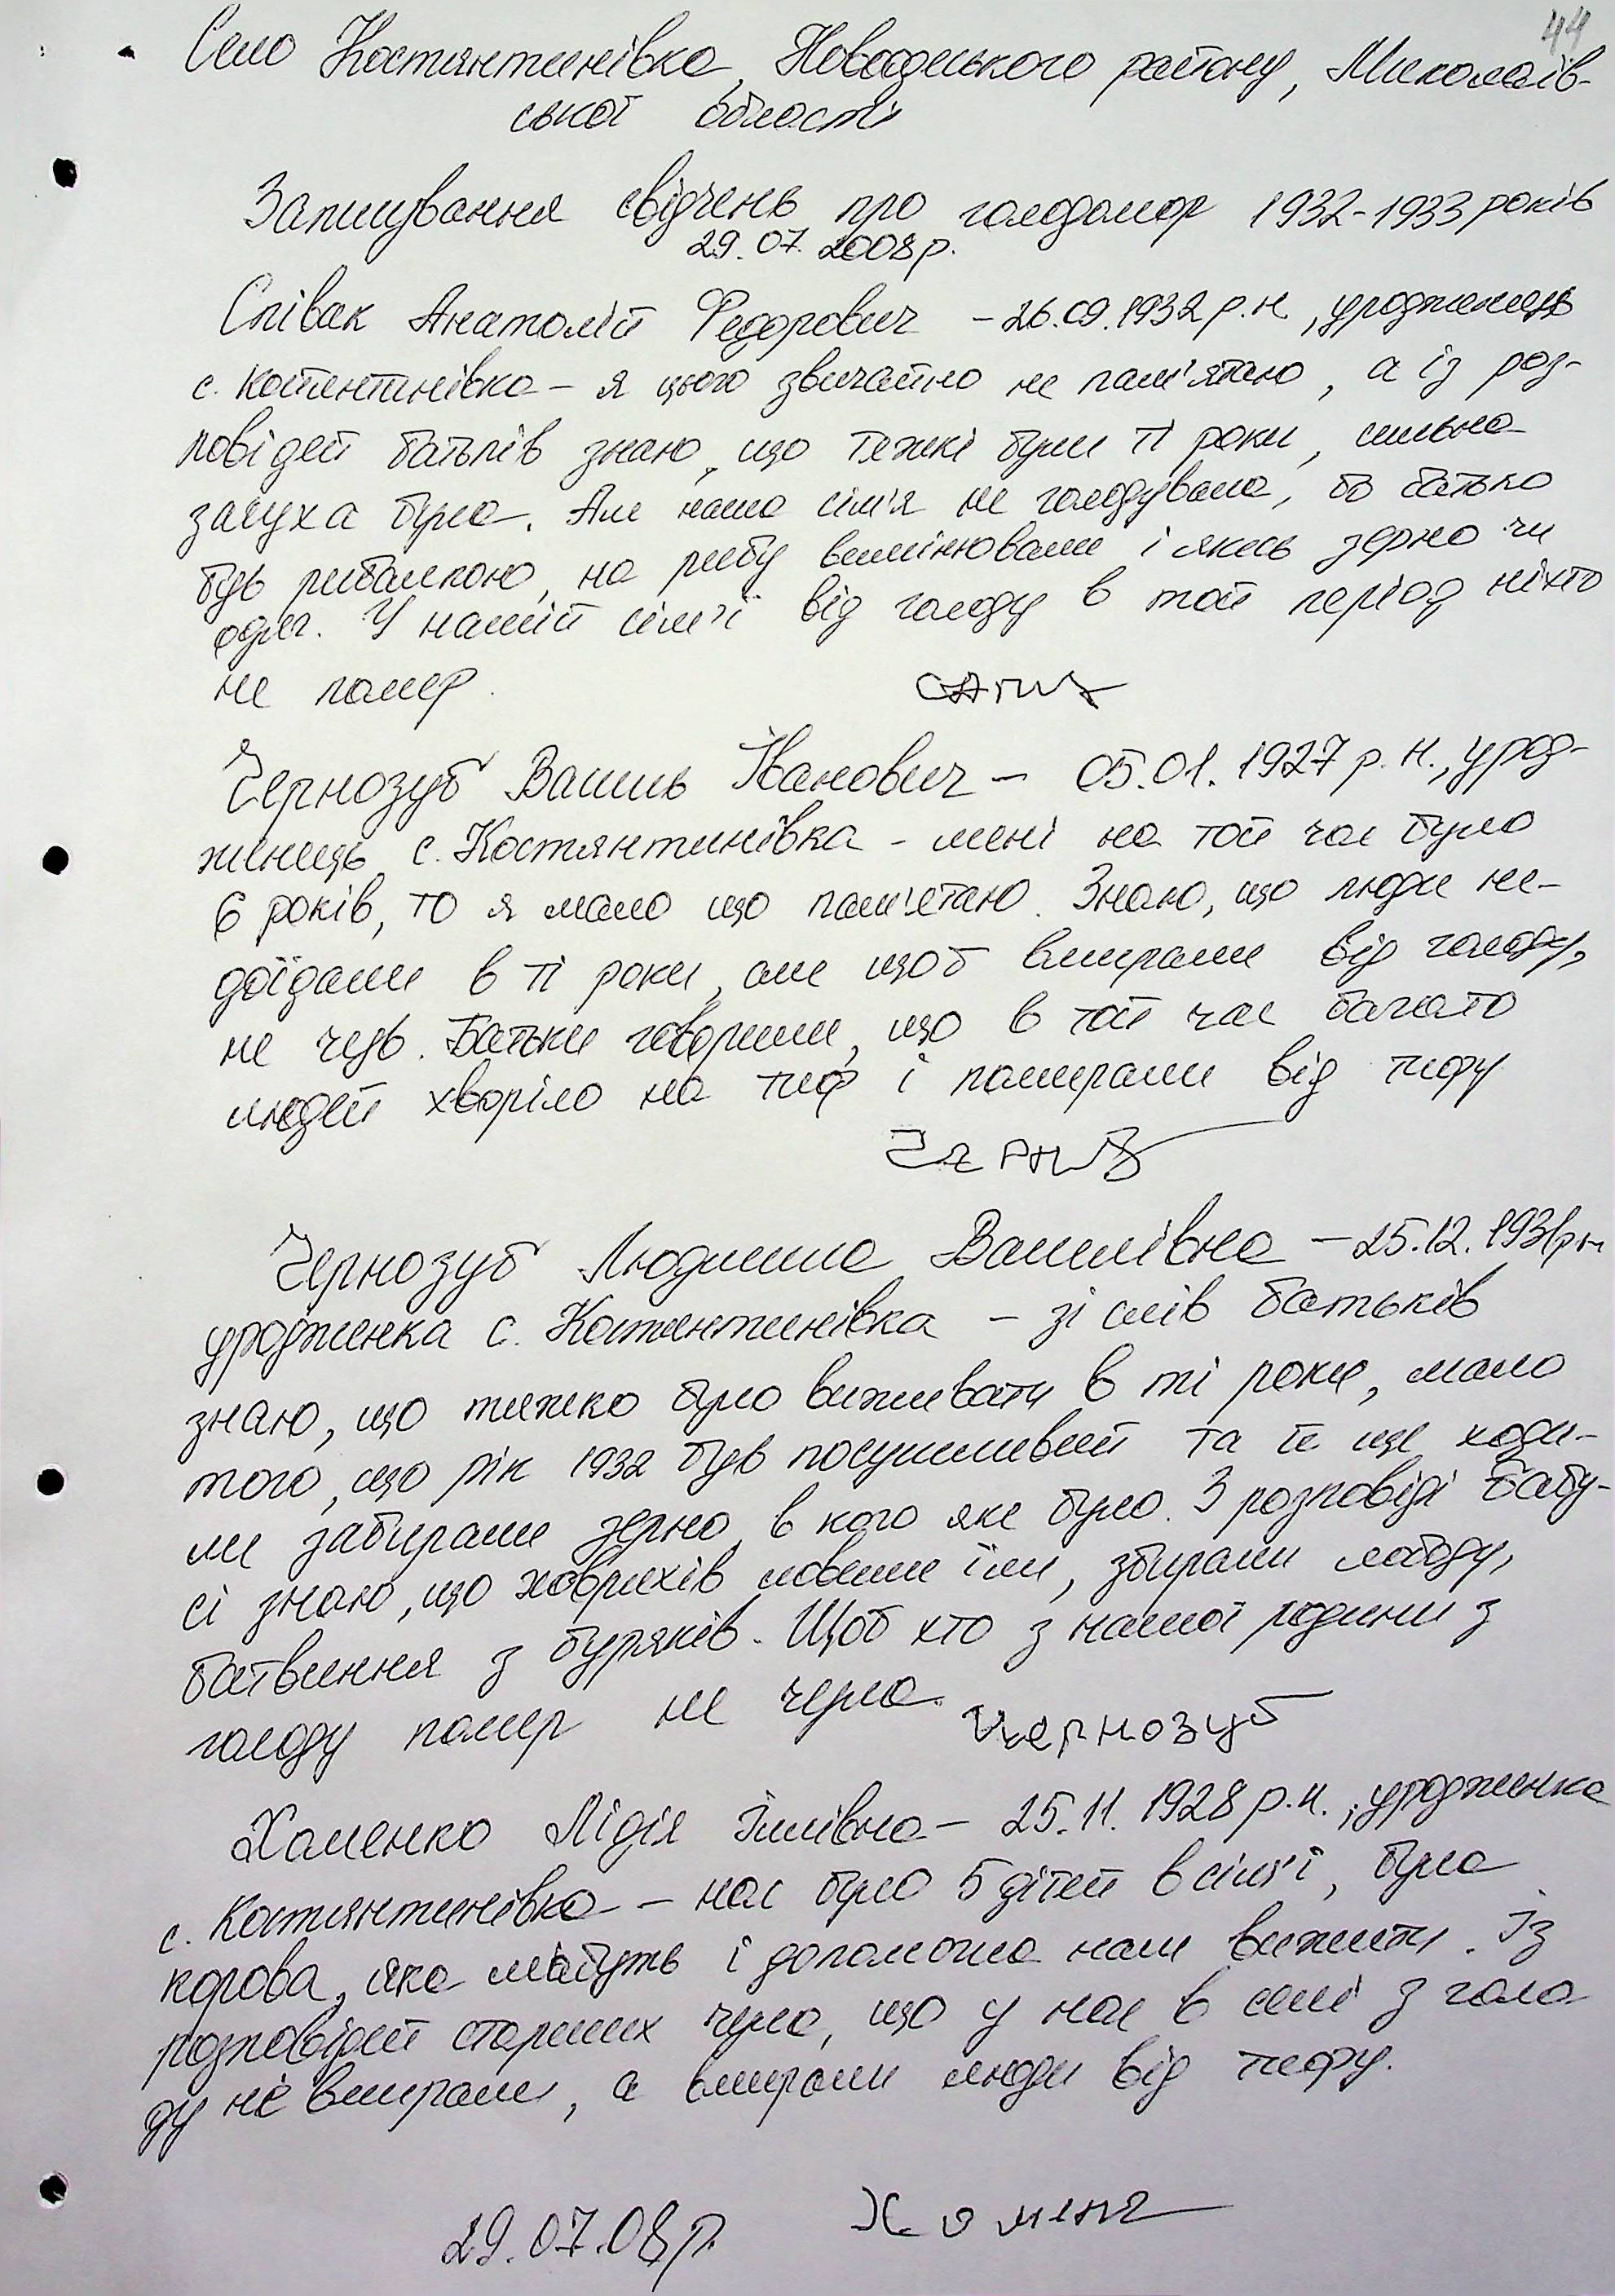 44
Село Костянтинівка, Новоодеського району, Миколаїв-
ської області
Записування свідчень про голодомор 1932-1933 років
29.07.2008р.
Співак Анатолій Федорович - 26.09.1932 р.н, уродженець
с. Костянтинівка - я цього звичайно не пам'ятаю, а із роз-
повідей батьків знаю, що тяжкі були ті роки, сильна
засуха була. Але наша сім'я не голодувала, бо батько
був рибалкою, на рибу вимінювали і якесь зерно чи
одяг. У нашій сім'ї від голоду в той період ніхто
не помер.
Чернозуб Василь Іванович - 05.01.1927 р.н., урод-
женець с. Костянтинівка - мені на той час було
6 років, то я мало що пам'ятаю. Знаю, що люди не-
доїдали в ті роки, але щоб вмирали від голоду,
не чув. Батьки говорили, що в той час багато
людей хворіло на тиф і помирали від тифу
Чернозуб Людмила Василівна - 25.12.1931р н
уродженка с. Костянтинівка - зі слів батьків
знаю, що тяжко було виживати в ті роки, мало
того, що рік 1932 був посушливий та й ще ходи-
ли забирали зерно, в кого яке було. З розповіді бабу-
сі знаю, що ховрахів ловили їли, збирали лободу,
батвиння з буряків. Щоб хто з нашої родини з
голоду помер не чула. Чернозуб
Хоменко Лідія Іллівна - 25.11.1928 р.н., уродженка
с. Костянтинівка - нас було 5 дітей в сім'ї, була
корова, яка мабуть і допомогла нам вижити. Із
розповідей старших чула, що у нас в селі з голо
ду не вмирали, а вмирали люди від тифу.
29.07.08р. Хоменк